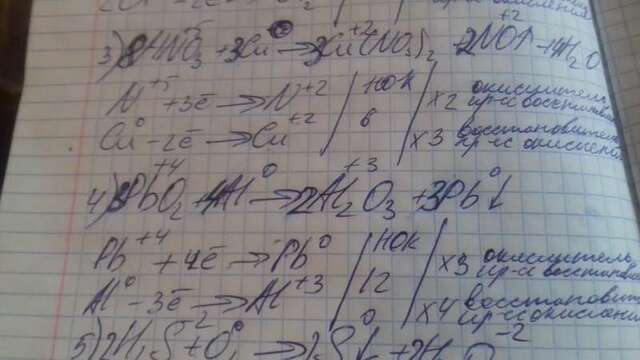 3) 8HN⁺⁵O₃ + 3Cu⁰ → 3Cu⁺²(NO₃)₂ + 2N⁺²O↑ + 4H₂O
N⁺⁵ + 3ē → N⁺² | НОК | x2 окислитель
6 пр-сс восстанов
Cu⁰ - 2ē → Cu⁺² | x3 восстановитель
пр-сс окислен
4) 3Pb⁺⁴O₂ + 4Al⁰ → 2Al₂⁺³O₃ + 3Pb⁰↓
Pb⁺⁴ + 4ē → Pb⁰ | НОК | x3 окислитель
12 пр-сс восстанов
Al⁰ - 3ē → Al⁺³ | x4 восстанови
пр-сс окислания
5) 2H₂S⁻² + O₂⁰ → 2S↓ + 2H₂O⁻²